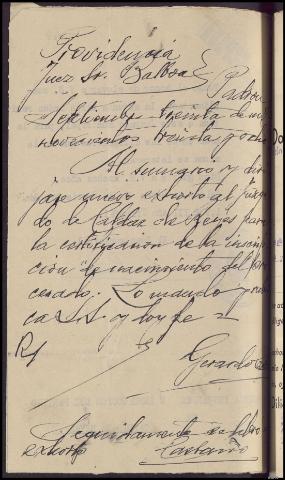 Providencia
Juez Sr. Balboa } Padron
Septiembre treinta de mil
novecientos treinta y ocho
Al sumario y diri
jase nuevo exhorto al juzga
do de Caldas de Reyes para
la certificación de la inscrip
ción de nacimiento del pro
cesado. Lo mando y rubri
ca S.S. y doy fe =
R/
Gerardo
Seguidamente se libro
exhorto